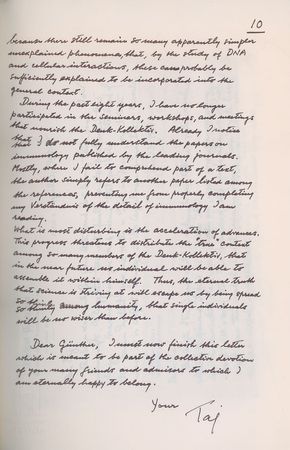 10
because there still remain so many apparently simpler
unexplained phenomena, that, by the study of DNA
and cellular interactions, these can probably be
sufficiently explained to be incorporated into the
general context.
During the past eight years, I have no longer
participated in the seminars, workshops, and meetings
that nourish the Denk-Kollektiv. Already I notice
that I do not fully understand the papers on
immunology published by the leading journals.
Mostly, where I fail to comprehend part of a text,
the author simply refers to another paper listed among
the references, preventing me from properly completing
my Verständnis of the detail of immunology I am
reading.
What is most disturbing is the acceleration of advances.
This progress threatens to distribute the "true" context
among so many members of the Denk-Kollektiv, that
in the near future no individual will be able to
assemble it within himself. Thus, the eternal truth
that science is striving at will escape us by being spread
so thinly among humanity, that single individuals
will be no wiser than before.
Dear Günther, I must now finish this letter
which is meant to be part of the collective devotion
of your many friends and admirers to which I
am eternally happy to belong.
Your Taj